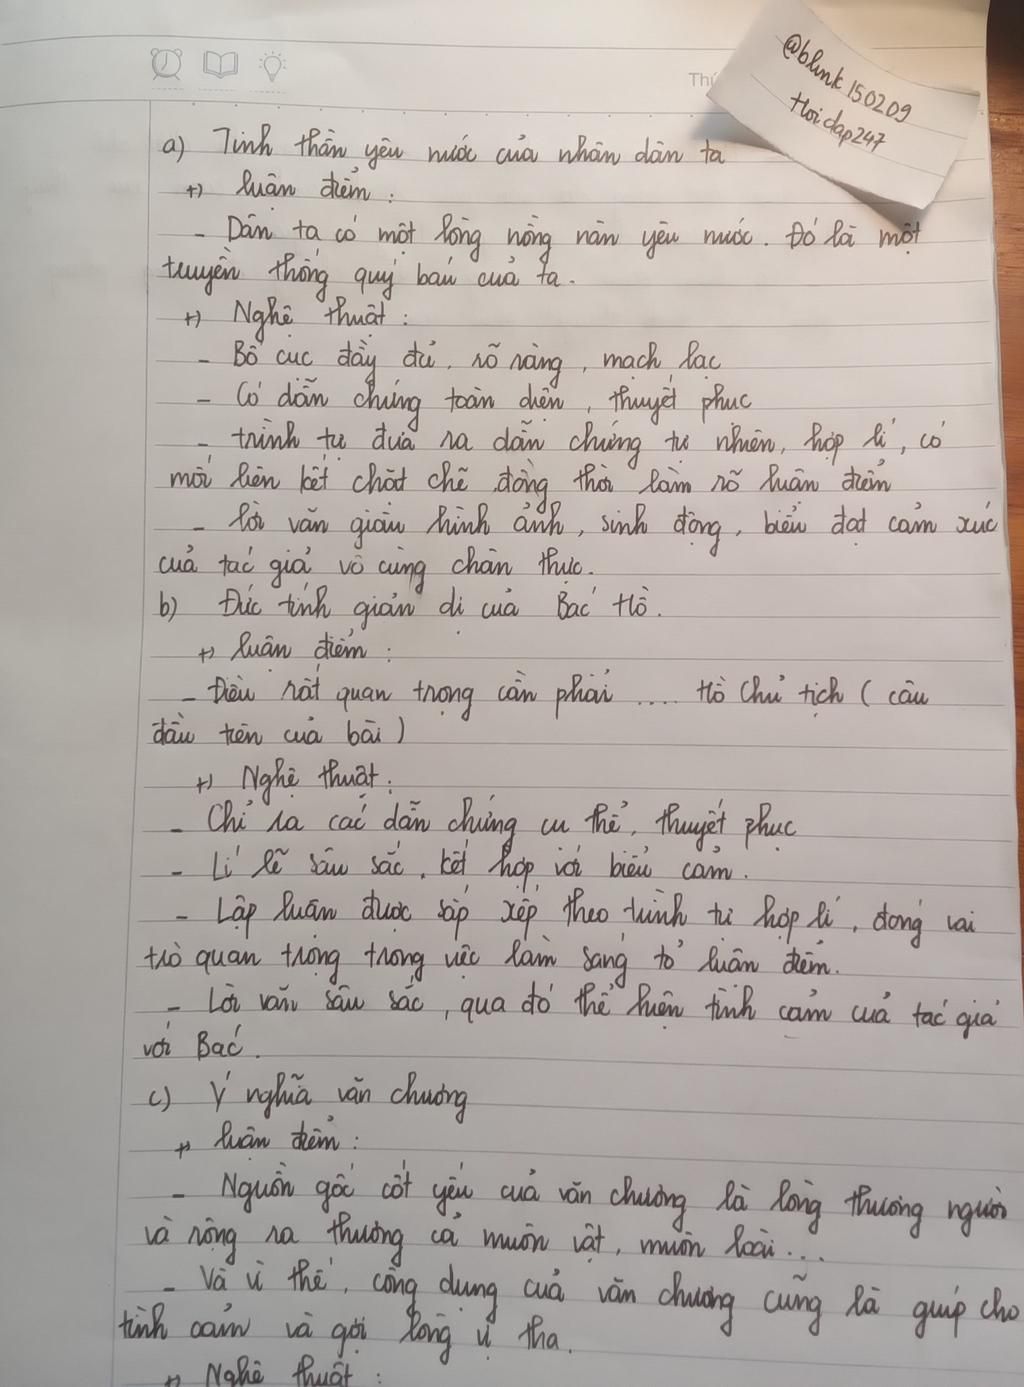 Thứ
@blink150209
Hoidap247
a) Tinh thần yêu nước của nhân dân ta
+) luận điểm :
- Dân ta có một lòng nồng nàn yêu nước. Đó là một
truyền thống quý báu của ta.
+) Nghệ thuật :
- Bố cục đầy đủ, rõ ràng, mạch lạc
- Có dẫn chứng toàn diện, thuyết phục
- trình tự đưa ra dẫn chứng tự nhiên, hợp lí, có
mối liên kết chặt chẽ đồng thời làm rõ luận điểm
- lời văn giàu hình ảnh, sinh động, biểu đạt cảm xúc
của tác giả vô cùng chân thực.
b) Đức tính giản dị của Bác Hồ.
+) luận điểm :
- Điều rất quan trọng cần phải .... Hồ Chủ tịch ( câu
đầu tiên của bài )
+) Nghệ thuật :
- Chỉ ra các dẫn chứng cụ thể, thuyết phục
- Lí lẽ sâu sắc, kết hợp với biểu cảm.
- Lập luận được sắp xếp theo trình tự hợp lí, đóng vai
trò quan trọng trong việc làm sáng tỏ luận điểm.
- Lời văn sâu sắc, qua đó thể hiện tình cảm của tác giả
với Bác.
c) Ý nghĩa văn chương
+) luận điểm :
- Nguồn gốc cốt yếu của văn chương là lòng thương người
và rộng ra thương cả muôn vật, muôn loài...
- Và vì thế, công dụng của văn chương cũng là giúp cho
tình cảm và gợi lòng vị tha.
+) Nghệ thuật :